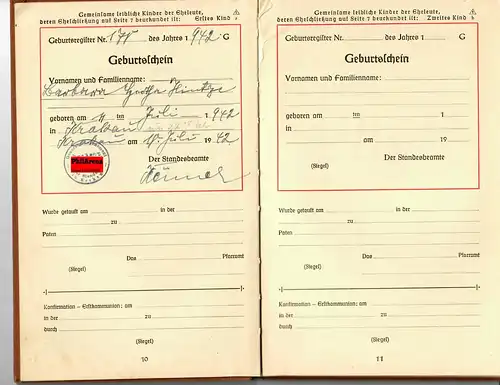 Gemeinsame leibliche Kinder der Eheleute,
deren Eheschließung auf Seite 7 beurkundet ist: Erstes Kind
Geburtsregister Nr. 177 des Jahres 1942 G
Geburtsschein
Vornamen und Familienname:
Barbara Hintze
geboren am 11 ten Juli 1 942
in Krakau
Krakau am Juli 19 42
Der Standesbeamte
Philarena
Wurde getauft am in der
zu
Paten
Das Pfarramt
(Siegel)
Konfirmation – Erstkommunion: am
in der zu
durch
(Siegel)
10
Gemeinsame leibliche Kinder der Eheleute,
deren Eheschließung auf Seite 7 beurkundet ist: Zweites Kind
Geburtsregister Nr. des Jahres 1 G
Geburtsschein
Vornamen und Familienname:
geboren am ten 1
in
am 19
Der Standesbeamte
(Siegel)
Wurde getauft am in der
zu
Paten
Das Pfarramt
(Siegel)
Konfirmation – Erstkommunion: am
in der zu
durch
(Siegel)
11